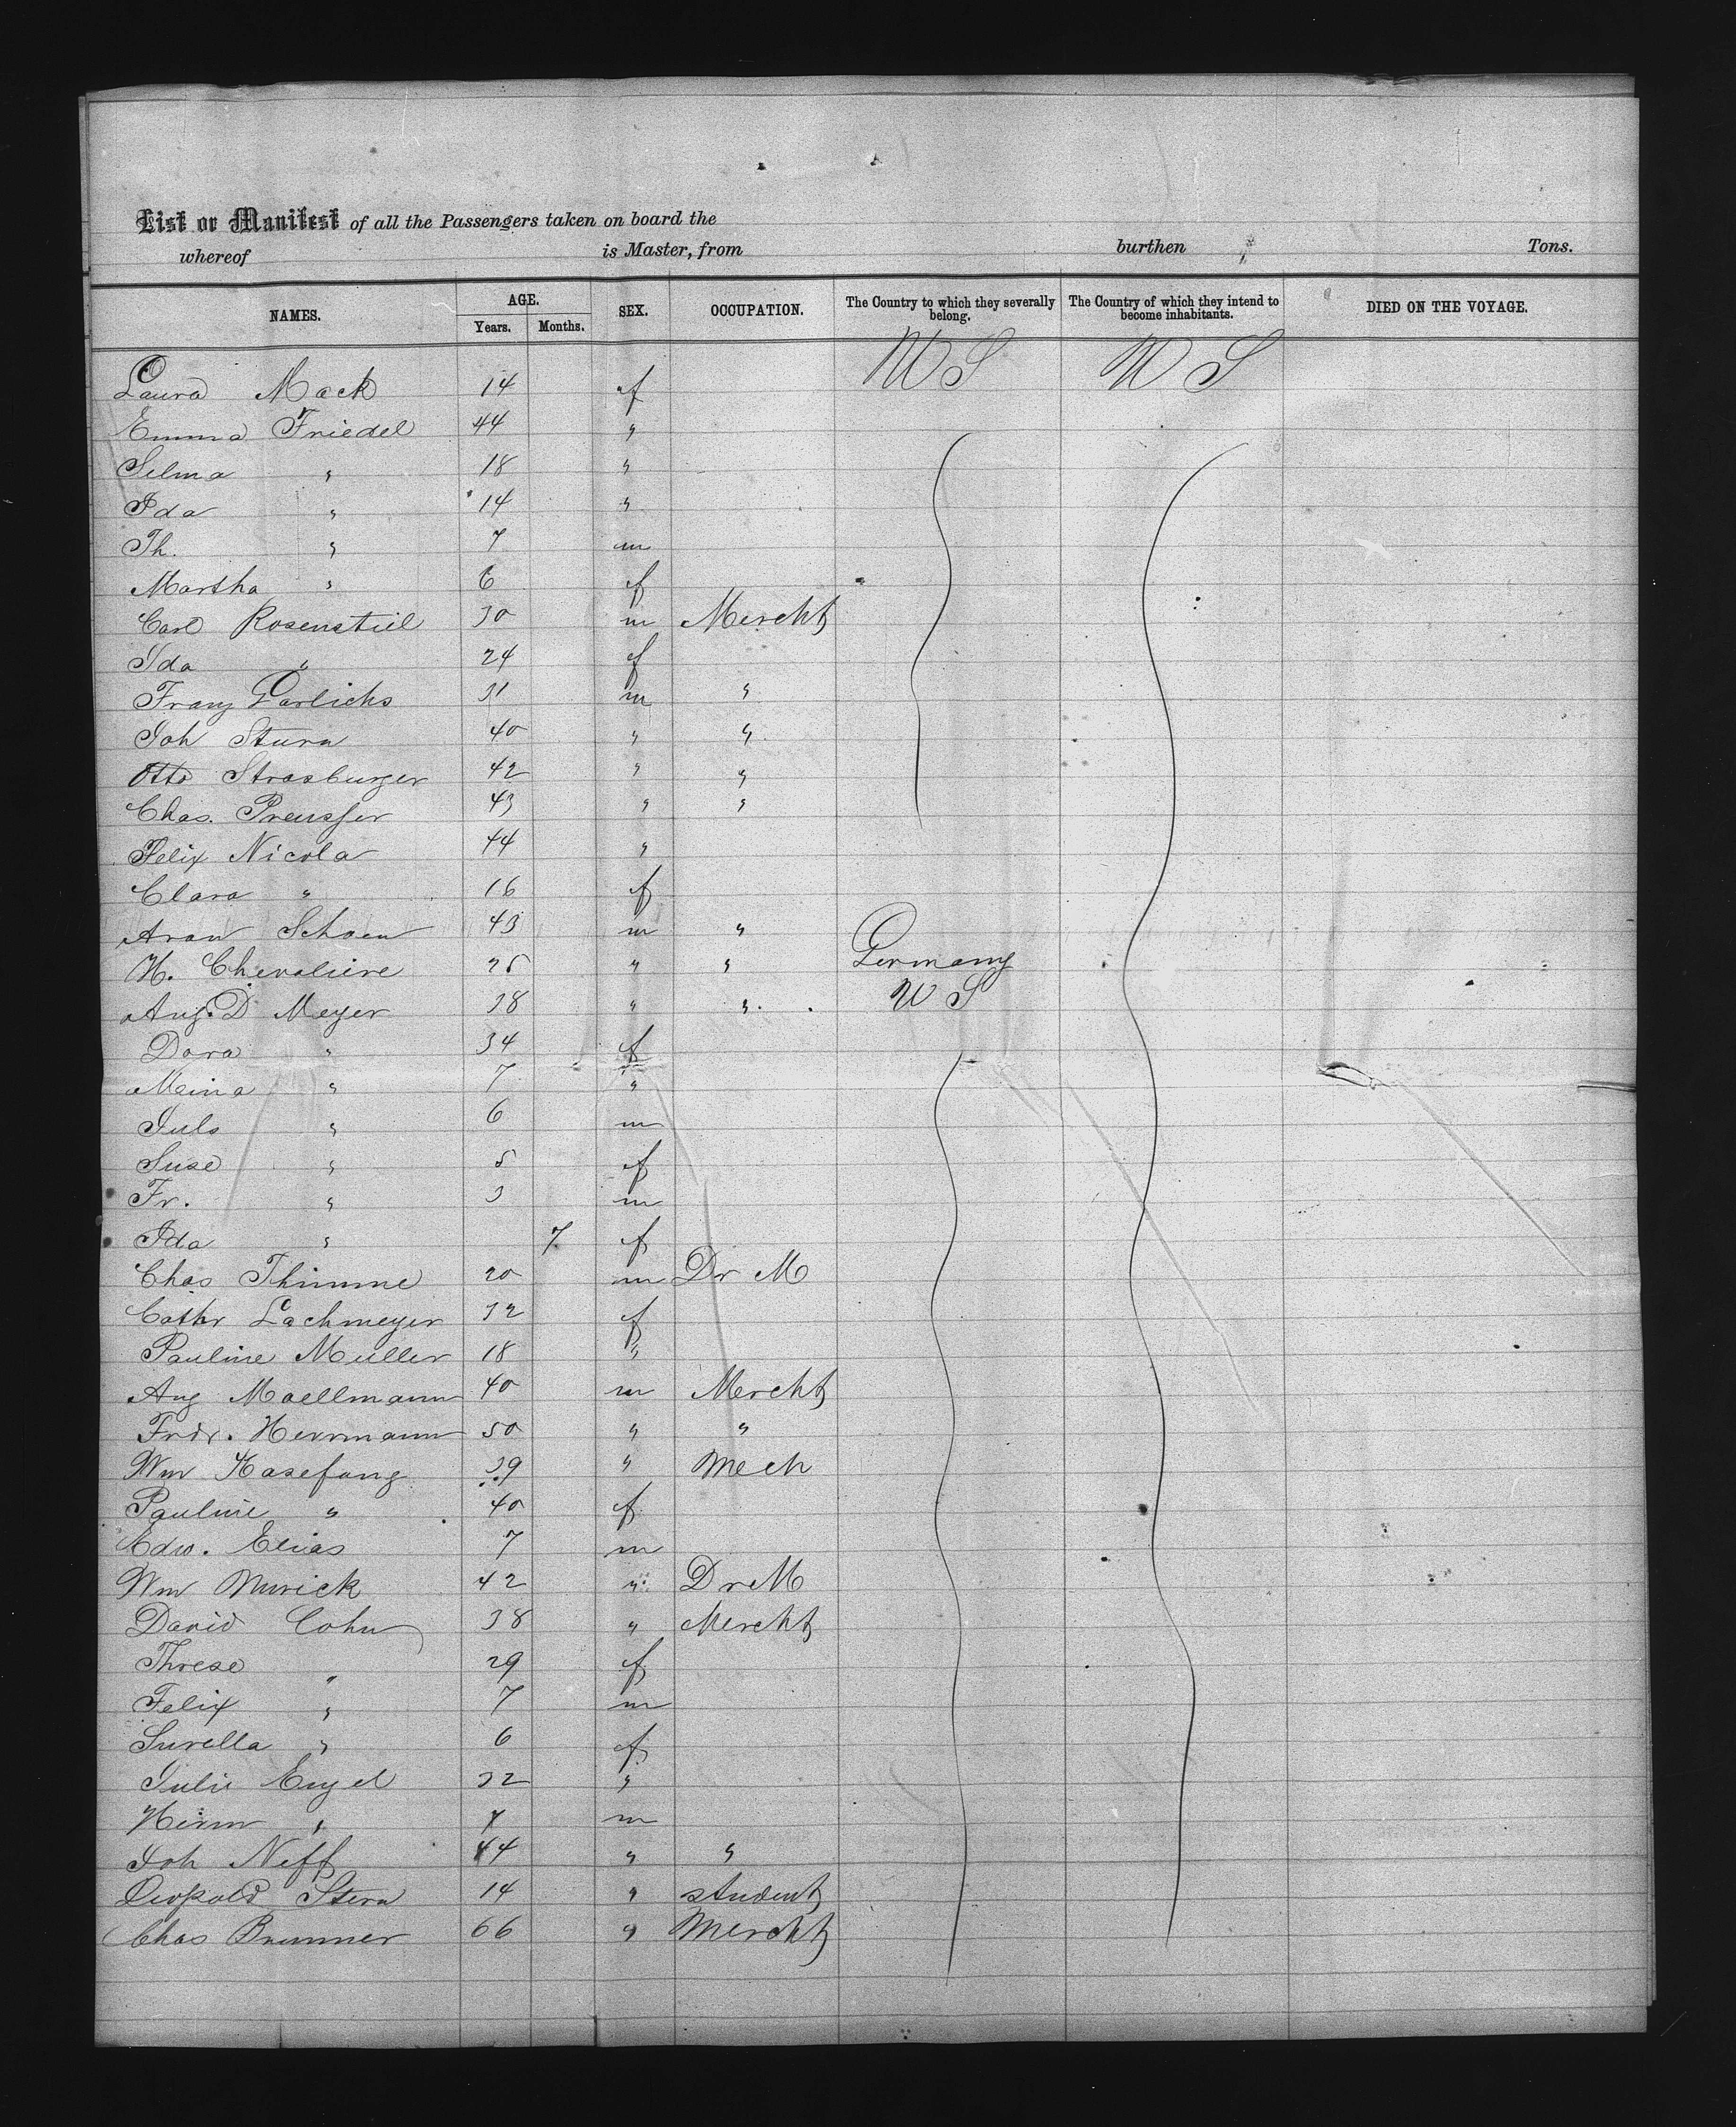 List or Manifest of all the Passengers taken on board the
whereof is Master, from burthen Tons.
NAMES. AGE. Years. Months. SEX. OCCUPATION. The Country to which they severally belong. The Country of which they intend to become inhabitants. DIED ON THE VOYAGE.
Laura Mack 14 f U S U S
Emma Friedel 44 "
Selma " 18 "
Ida " 14 "
Th. " 7 m
Martha " 6 f
Carl Rosenstiel 30 m Mercht
Ida " 24 f
Franz Garlichs 31 m "
Joh Sturn 40 " "
Otto Strasburger 42 " "
Chas. Preusser 43 " "
Felix Nicola 44 "
Clara " 16 f
Aron Schoen 43 m "
H. Chevaliere 25 " " Germany
Aug. D Meyer 38 " " U S
Dora " 34 f
Meina " 7 "
Juls " 6 m
Suse " 5 f
Fr. " 3 m
Ida " 7 f
Chas Thimme 20 m Dr M
Cathr Lachmeyer 32 f
Pauline Muller 18 "
Aug Moellmann 40 m Mercht
Frdr. Herrmann 50 " "
Wm Hasefang 39 " Mech
Pauline " 40 f
Edw. Elias 7 m
Wm 42 " Dr M
David Cohn 38 " Mercht
Threse " 29 f
Felix " 7 m
" 6 f
Julie Engel 32 "
Herm " 7 m
Joh Neff 44 " "
Leopold Stern 14 " student
Chas Brunner 66 " Mercht